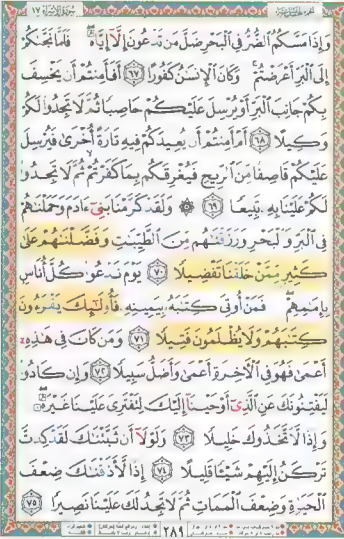 سورة الإسراء ١٧
وَإِذَا مَسَّكُمُ الضُّرُّ فِي الْبَحْرِ ضَلَّ مَن تَدْعُونَ إِلَّا إِيَّاهُ ۖ فَلَمَّا نَجَّىٰكُمْ
إِلَى الْبَرِّ أَعْرَضْتُمْ ۚ وَكَانَ الْإِنسَٰنُ كَفُورًا ٦٧ أَفَأَمِنتُمْ أَن يَخْسِفَ
بِكُمْ جَانِبَ الْبَرِّ أَوْ يُرْسِلَ عَلَيْكُمْ حَاصِبًا ثُمَّ لَا تَجِدُوا لَكُمْ
وَكِيلًا ٦٨ أَمْ أَمِنتُمْ أَن يُعِيدَكُمْ فِيهِ تَارَةً أُخْرَىٰ فَيُرْسِلَ
عَلَيْكُمْ قَاصِفًا مِّنَ الرِّيحِ فَيُغْرِقَكُم بِمَا كَفَرْتُمْ ثُمَّ لَا تَجِدُوا
لَكُمْ عَلَيْنَا بِهِ تَبِيعًا ٦٩ ۞ وَلَقَدْ كَرَّمْنَا بَنِي ءَادَمَ وَحَمَلْنَٰهُمْ
فِي الْبَرِّ وَالْبَحْرِ وَرَزَقْنَٰهُم مِّنَ الطَّيِّبَٰتِ وَفَضَّلْنَٰهُمْ عَلَىٰ
كَثِيرٍ مِّمَّنْ خَلَقْنَا تَفْضِيلًا ٧٠ يَوْمَ نَدْعُوا كُلَّ أُنَاسٍ
بِإِمَٰمِهِمْ ۖ فَمَنْ أُوتِيَ كِتَٰبَهُ بِيَمِينِهِ فَأُولَٰئِكَ يَقْرَءُونَ
كِتَٰبَهُمْ وَلَا يُظْلَمُونَ فَتِيلًا ٧١ وَمَن كَانَ فِي هَٰذِهِ
أَعْمَىٰ فَهُوَ فِي الْآخِرَةِ أَعْمَىٰ وَأَضَلُّ سَبِيلًا ٧٢ وَإِن كَادُوا
لَيَفْتِنُونَكَ عَنِ الَّذِي أَوْحَيْنَا إِلَيْكَ لِتَفْتَرِيَ عَلَيْنَا غَيْرَهُ ۖ
وَإِذًا لَّاتَّخَذُوكَ خَلِيلًا ٧٣ وَلَوْلَا أَن ثَبَّتْنَٰكَ لَقَدْ كِدتَّ
تَرْكَنُ إِلَيْهِمْ شَيْئًا قَلِيلًا ٧٤ إِذًا لَّأَذَقْنَٰكَ ضِعْفَ
الْحَيَوٰةِ وَضِعْفَ الْمَمَاتِ ثُمَّ لَا تَجِدُ لَكَ عَلَيْنَا نَصِيرًا ٧٥
٢٨٩